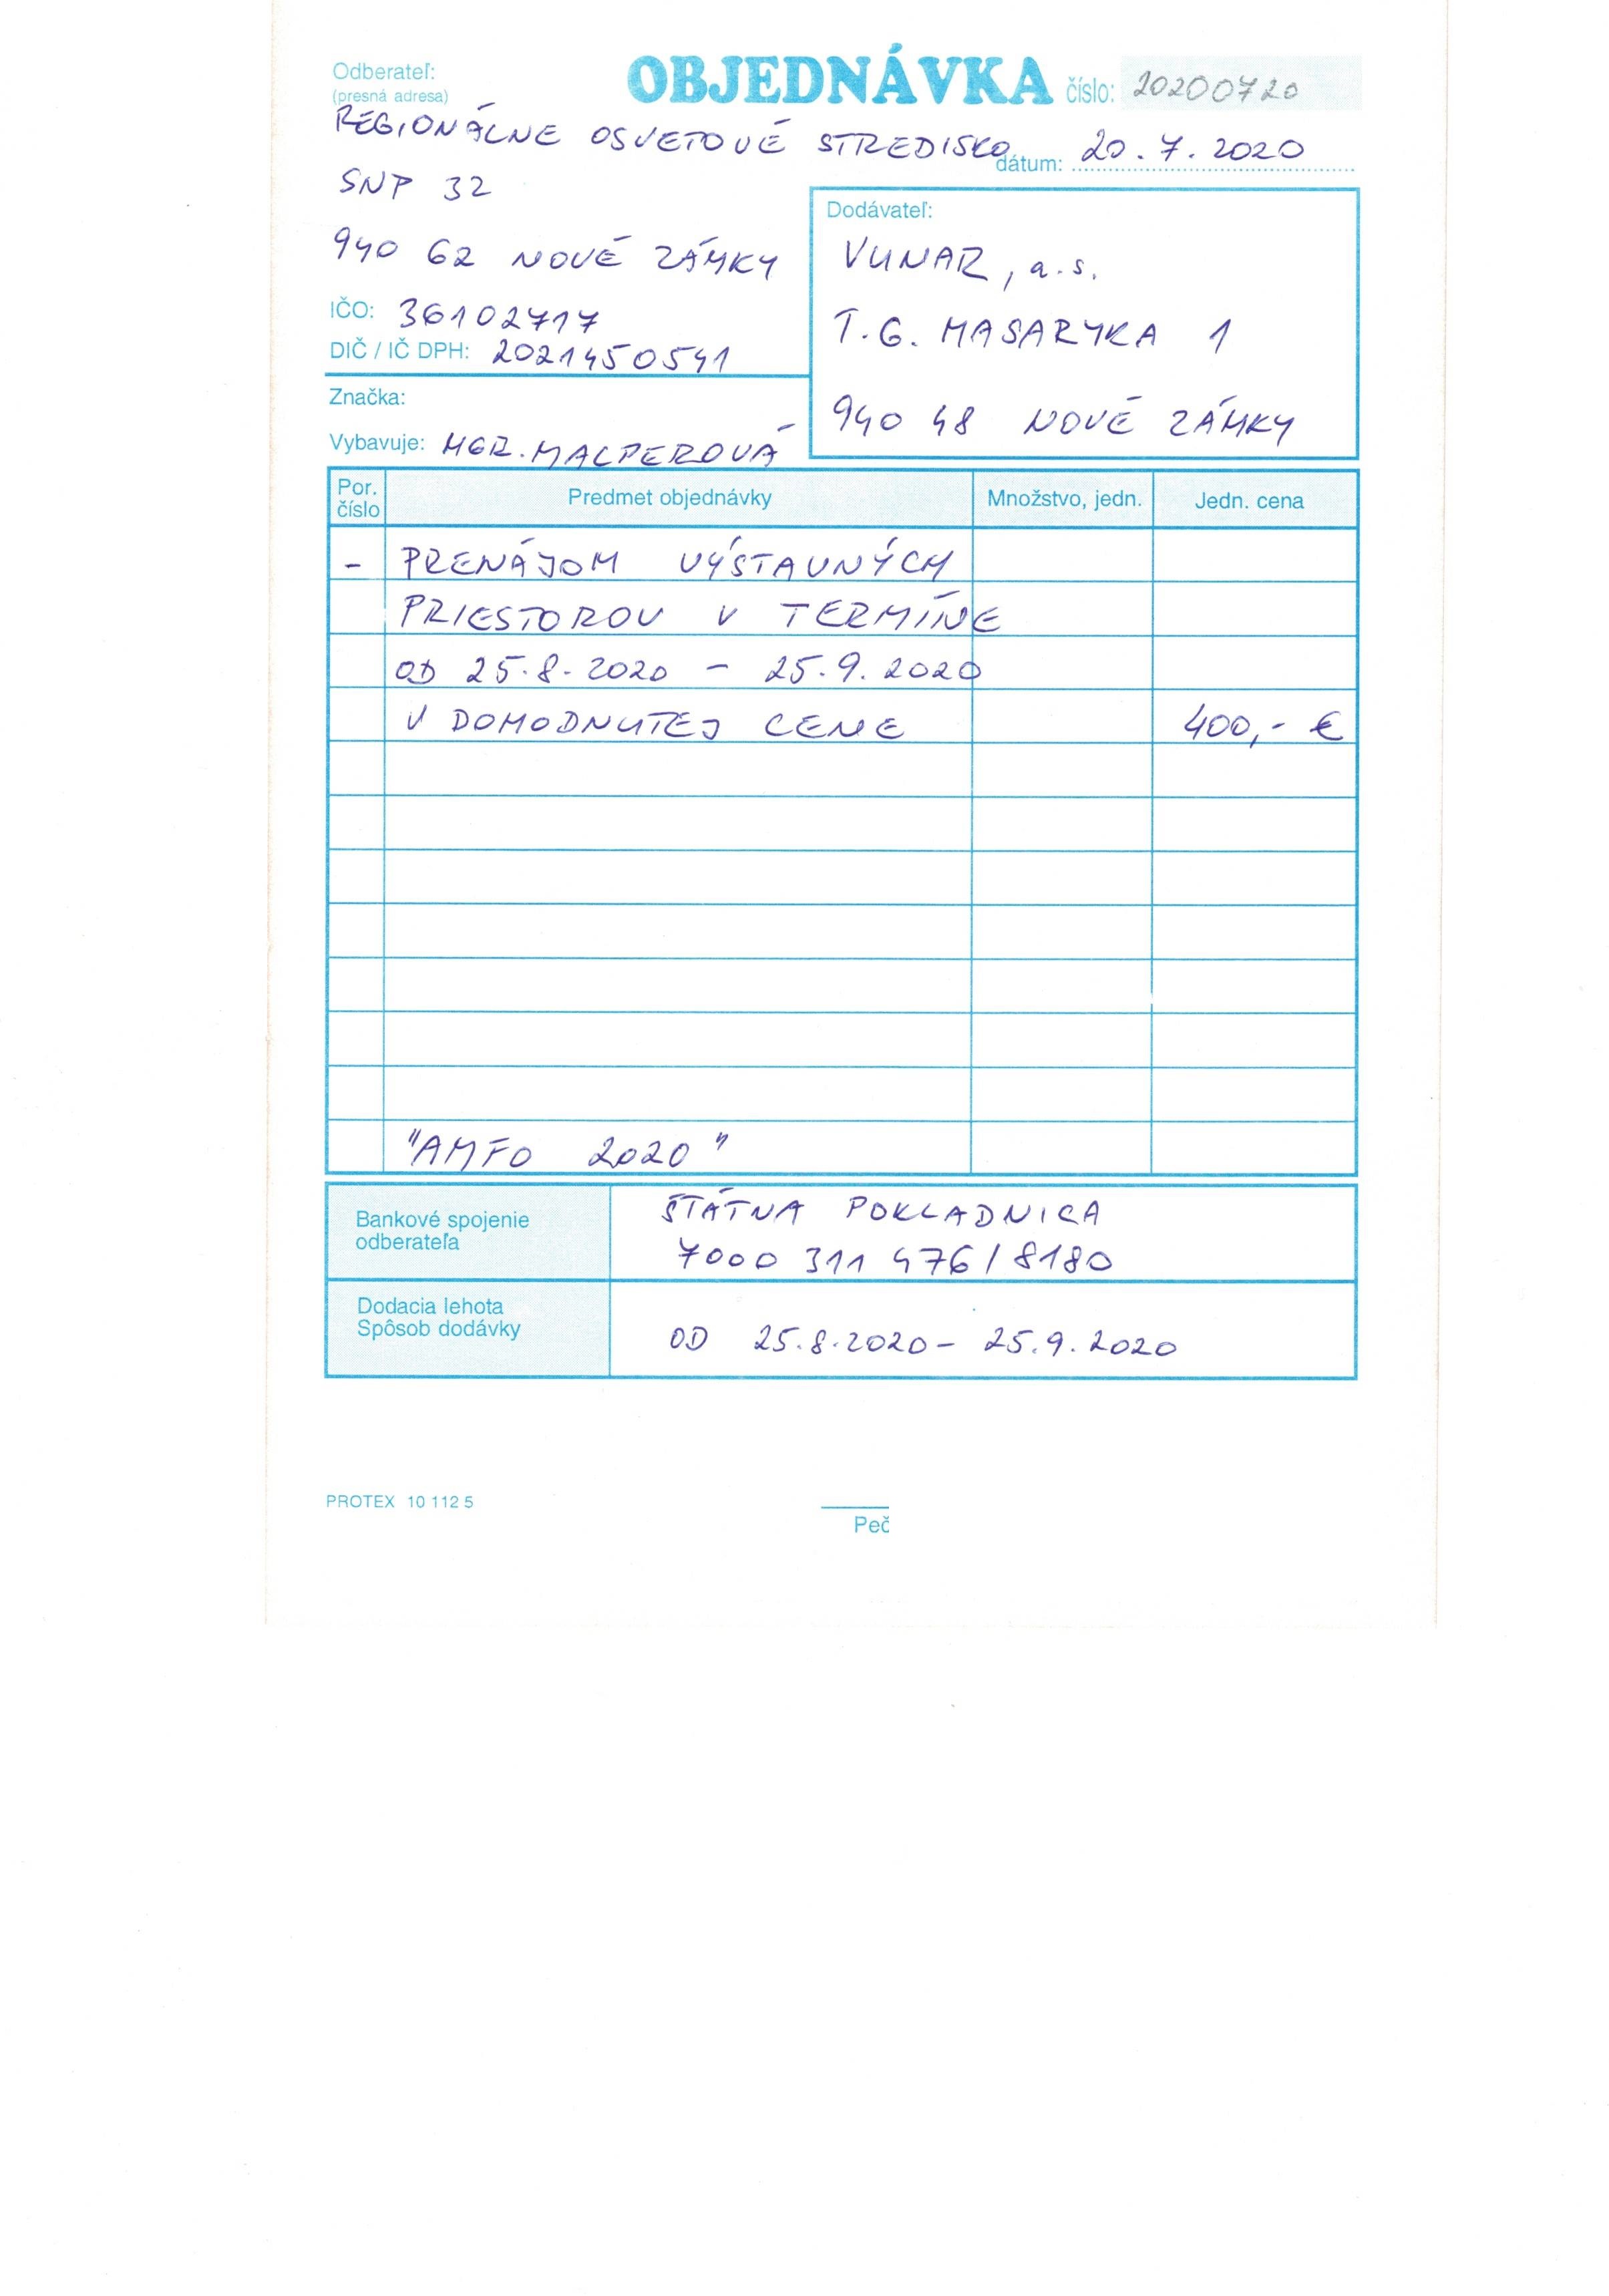 Odberateľ:
(presná adresa)
OBJEDNÁVKA číslo: 20200720
REGIONÁLNE OSVETOVÉ STREDISKO
dátum: 20.7.2020
SNP 32
940 62 NOVÉ ZÁMKY
IČO: 36102717
DIČ / IČ DPH: 2021450541
Značka:
Vybavuje: MGR. MALPEROVÁ
Dodávateľ:
VUNAR, a.s.
T.G. MASARYKA 1
940 48 NOVÉ ZÁMKY
Por. číslo Predmet objednávky Množstvo, jedn. Jedn. cena
- PRENÁJOM VÝSTAVNÝCH
PRIESTOROV V TERMÍNE
OD 25.8.2020 - 25.9.2020
V DOHODNUTEJ CENE 400,- €
"AMFO 2020"
Bankové spojenie
odberateľa
ŠTÁTNA POKLADNICA
7000 311 476/8180
Dodacia lehota
Spôsob dodávky
OD 25.8.2020 - 25.9.2020
PROTEX 10 112 5
Peč